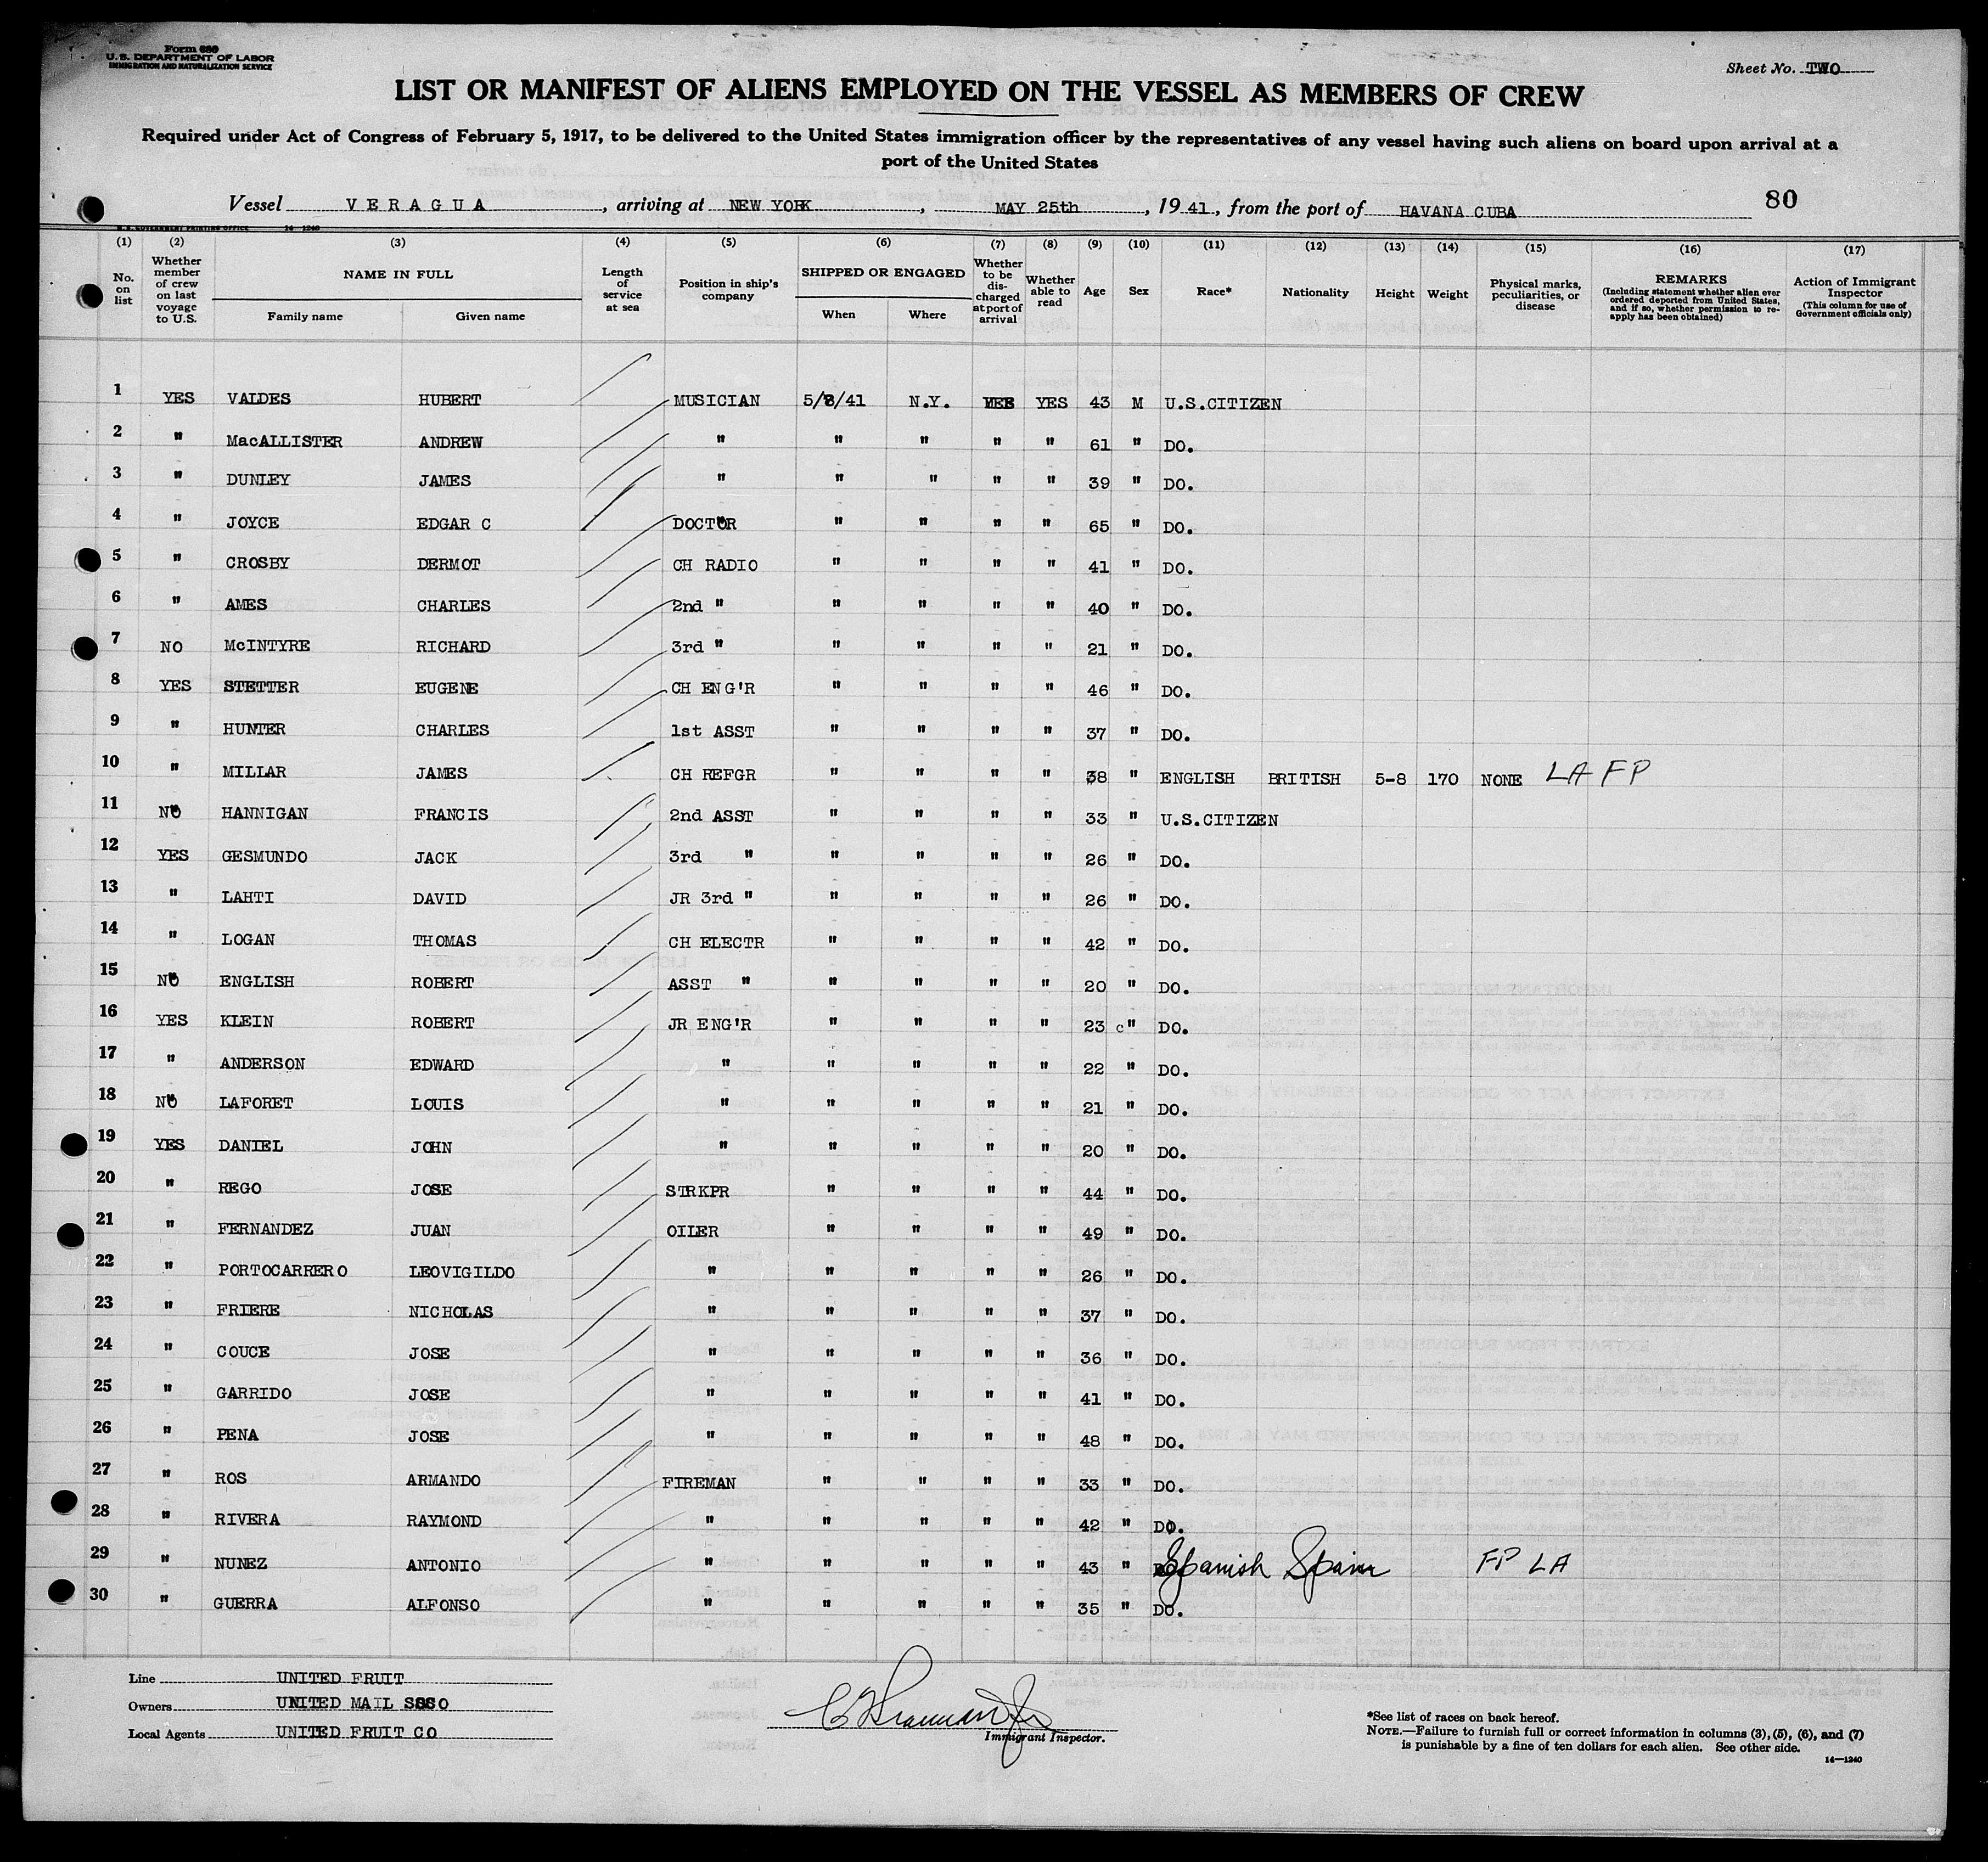 Form 680
U. S. DEPARTMENT OF LABOR
IMMIGRATION AND NATURALIZATION SERVICE
Sheet No. TWO
LIST OR MANIFEST OF ALIENS EMPLOYED ON THE VESSEL AS MEMBERS OF CREW
Required under Act of Congress of February 5, 1917, to be delivered to the United States immigration officer by the representatives of any vessel having such aliens on board upon arrival at a
port of the United States
Vessel VERAGUA, arriving at NEW YORK, MAY 25th, 1941, from the port of HAVANA CUBA 80
U.S. GOVERNMENT PRINTING OFFICE 14—1240
(1) (2) (3) (4) (5) (6) (7) (8) (9) (10) (11) (12) (13) (14) (15) (16) (17)
No. on list
Whether member of crew on last voyage to U.S.
NAME IN FULL
Family name
Given name
Length of service at sea
Position in ship's company
SHIPPED OR ENGAGED
When
Where
Whether to be discharged at port of arrival
Whether able to read
Age
Sex
Race*
Nationality
Height
Weight
Physical marks, peculiarities, or disease
REMARKS
(Including statement whether alien ever ordered deported from United States, and if so, whether permission to reapply has been obtained)
Action of Immigrant Inspector
(This column for use of Government officials only)
1 YES VALDES HUBERT MUSICIAN 5/8/41 N.Y. YES YES 43 M U.S.CITIZEN
2 " MacALLISTER ANDREW " " " " " 61 " DO.
3 " DUNLEY JAMES " " " " " 39 " DO.
4 " JOYCE EDGAR C DOCTOR " " " " 65 " DO.
5 " CROSBY DERMOT CH RADIO " " " " 41 " DO.
6 " AMES CHARLES 2nd " " " " " 40 " DO.
7 NO McINTYRE RICHARD 3rd " " " " " 21 " DO.
8 YES STETTER EUGENE CH ENG'R " " " " 46 " DO.
9 " HUNTER CHARLES 1st ASST " " " " 37 " DO.
10 " MILLAR JAMES CH REFGR " " " " 38 " ENGLISH BRITISH 5-8 170 NONE LA FP
11 NO HANNIGAN FRANCIS 2nd ASST " " " " 33 " U.S.CITIZEN
12 YES GESMUNDO JACK 3rd " " " " " 26 " DO.
13 " LAHTI DAVID JR 3rd " " " " " 26 " DO.
14 " LOGAN THOMAS CH ELECTR " " " " 42 " DO.
15 NO ENGLISH ROBERT ASST " " " " " 20 " DO.
16 YES KLEIN ROBERT JR ENG'R " " " " 23 c" DO.
17 " ANDERSON EDWARD " " " " " 22 " DO.
18 NO LAFORET LOUIS " " " " " 21 " DO.
19 YES DANIEL JOHN " " " " " 20 " DO.
20 " REGO JOSE STRKPR " " " " 44 " DO.
21 " FERNANDEZ JUAN OILER " " " " 49 " DO.
22 " PORTOCARRERO LEOVIGILDO " " " " " 26 " DO.
23 " FRIERE NICHOLAS " " " " " 37 " DO.
24 " COUCE JOSE " " " " " 36 " DO.
25 " GARRIDO JOSE " " " " " 41 " DO.
26 " PENA JOSE " " " " " 48 " DO.
27 " ROS ARMANDO FIREMAN " " " " 33 " DO.
28 " RIVERA RAYMOND " " " " " 42 " DO.
29 " NUNEZ ANTONIO " " " " " 43 " Spanish Spain FP LA
30 " GUERRA ALFONSO " " " " " 35 " DO.
Line UNITED FRUIT
Owners UNITED MAIL SSSO
Local Agents UNITED FRUIT CO
Immigrant Inspector.
*See list of races on back hereof.
NOTE.—Failure to furnish full or correct information in columns (3), (5), (6), and (7)
is punishable by a fine of ten dollars for each alien. See other side.
14—1240